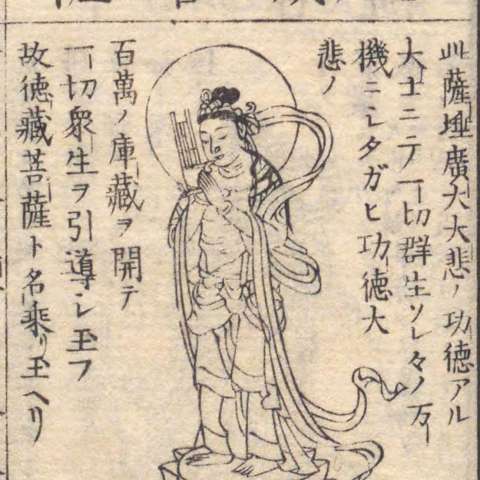 此薩埵廣大大悲ノ功徳アル
大士ニテ一切群生ソレ々ノ万
機ニシタガヒ功徳大
悲ノ
百萬ノ庫藏ヲ開テ
一切衆生ヲ引導シ玉フ
故徳藏菩薩ト名乘リ玉ヘリ